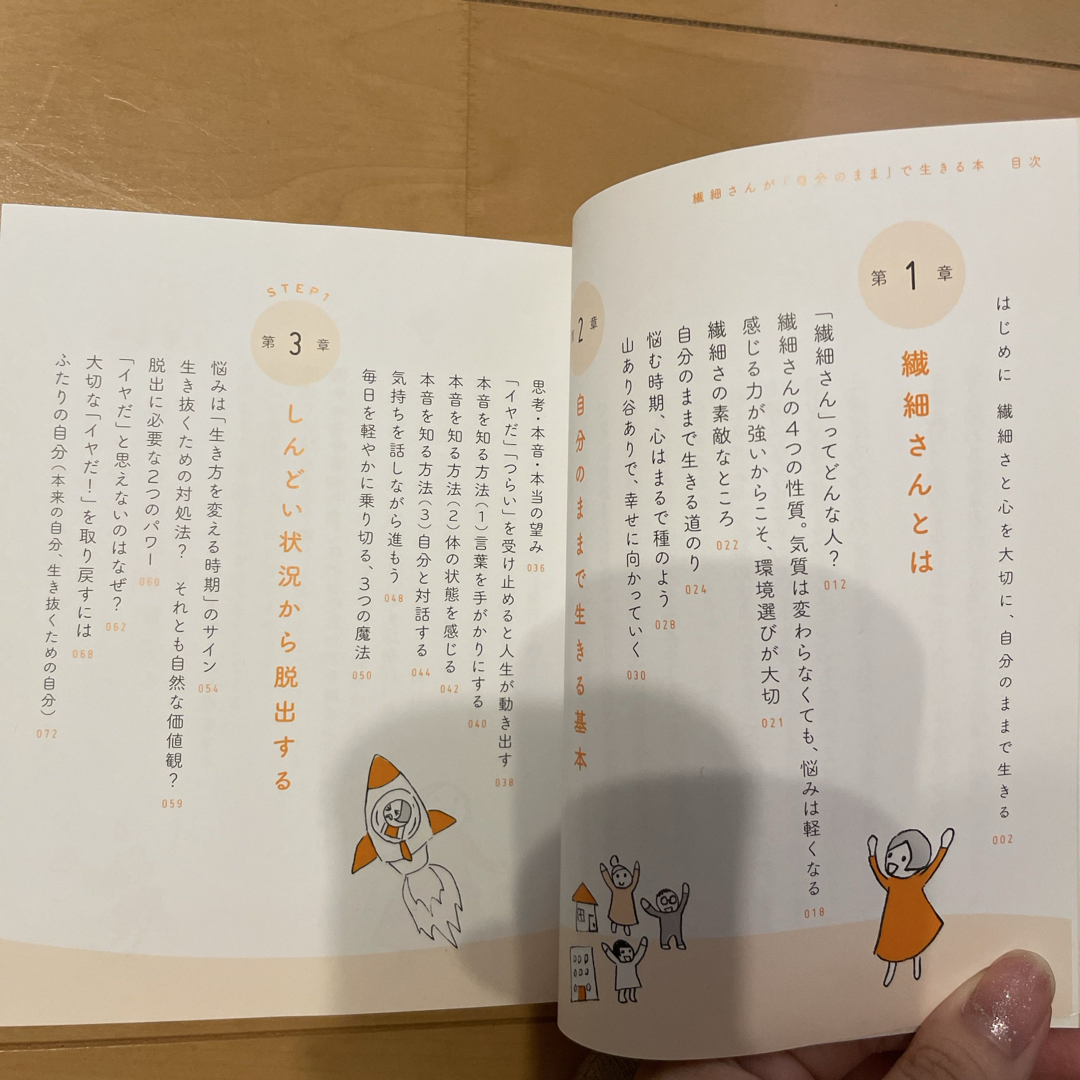 繊細さんが「自分のまま」で生きる本 目次
はじめに 繊細さと心を大切に、自分のままで生きる 002
第1章
繊細さんとは
「繊細さん」ってどんな人? 012
繊細さんの4つの性質。気質は変わらなくても、悩みは軽くなる 018
感じる力が強いからこそ、環境選びが大切 021
繊細さの素敵なところ 022
自分のままで生きる道のり 024
悩む時期、心はまるで種のよう 028
山あり谷ありで、幸せに向かっていく 030
2章
自分のままで生きる基本
思考・本音・本当の望み 036
「イヤだ」「つらい」を受け止めると人生が動き出す 038
本音を知る方法(1)言葉を手がかりにする 040
本音を知る方法(2)体の状態を感じる 042
本音を知る方法(3)自分と対話する 044
気持ちを話しながら進もう 048
毎日を軽やかに乗り切る、3つの魔法 050
STEP1
第3章
しんどい状況から脱出する
悩みは「生き方を変える時期」のサイン 054
生き抜くための対処法? それとも自然な価値観? 059
脱出に必要な2つのパワー 060
「イヤだ」と思えないのはなぜ? 062
大切な「イヤだ!」を取り戻すには 068
ふたりの自分(本来の自分、生き抜くための自分) 072